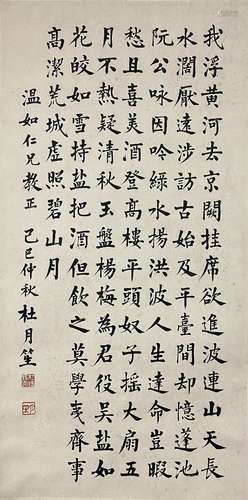 我浮黄河去京闕挂席欲進波連山天長
水濶厭遠涉訪古始及平臺間却憶蓬池
阮公咏因吟綠水揚洪波人生達命豈暇
愁且喜美酒登髙樓平頭奴子搖大扇五
月不熱疑清秋玉盤楊梅為君役吴盐如
花皎如雪持盐把酒但飲之莫學夷齊事
髙潔荒城虛照碧山月
温如仁兄教正 己巳仲秋 杜月笙